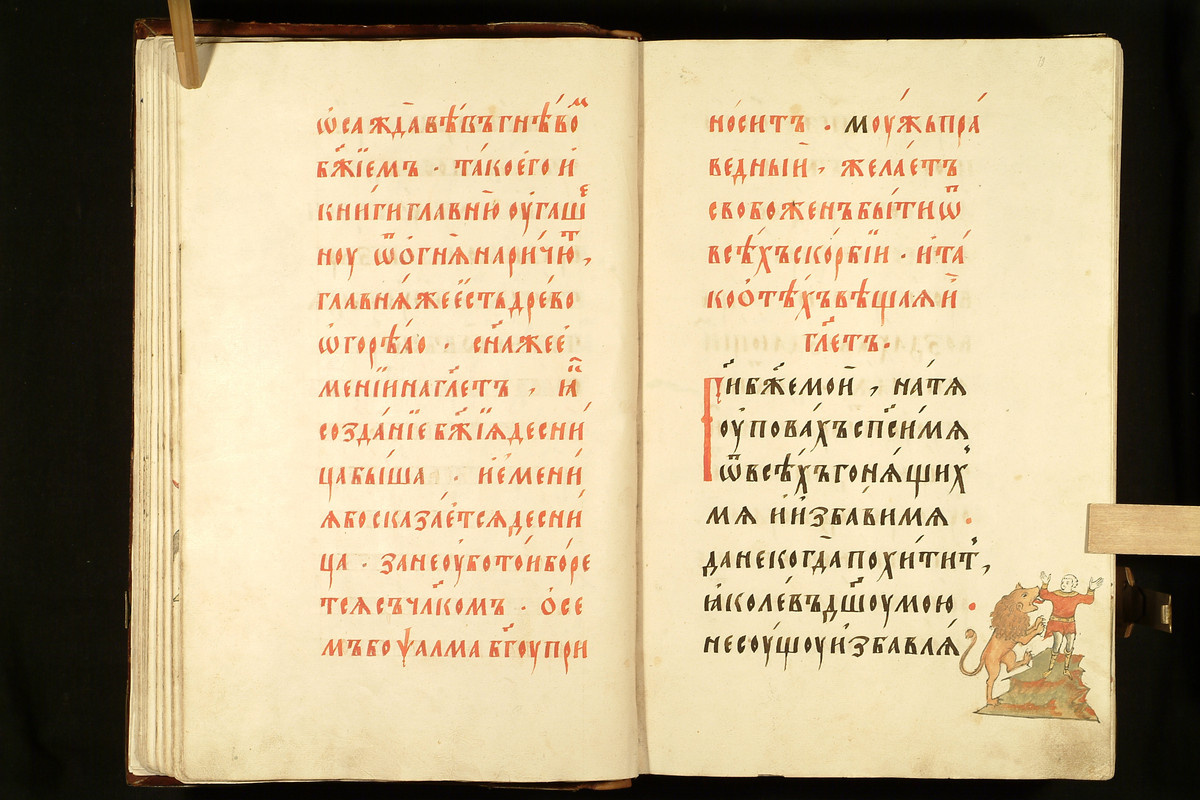 ѡ҆сажда́ в̾ѣ́въ гнѣ́воⷨ
бж҃їемъ · та́ко е҆го̀ и҆
кни́ги гла́вню оу҆гашⷷ
ноу ѿ о҆гнѧ̀ нари́чюⷮ,
главнѧ́ же е҆́сть дре́во
ѡ҆горѣ́ло , сн҃ла́же е҆
ме́нїи нагл҃етъ , и҆ⷩ҇
созда́нїе бж҃їѧ десни́
ца бы́ша · и҆е҆мени́
ѧ҆бо сказае́тсѧ десни́
ца · зане оу҆бо то́и бо́ре
тсѧ съ чл҃комъ · ѻ҆се
мъ бо ѱалма̀ бг҃оу при
но́ситъ · моужъ пра́
ведныи҆ , желае́тъ
свобоже́нъ бы́ти ѿ
всѣ́хъ ско́рбїи · и҆ та́
ко ѻ҆ тѣ́хъ вѣща́ѧ и҆
гл҃етъ.
Гⷭ҇и бж҃е мой , на тѧ
оу҆пова́хъ сп҃си́ мѧ
ѿ всѣ́хъ гонѧ́щихъ
мѧ и҆ и҆зба́ви мѧ .
да не когда̀ похи́титъ,
ꙗ҆ко ле́въ дш҃оу мою̀ .
не соу́щоу и҆збавлѧ́